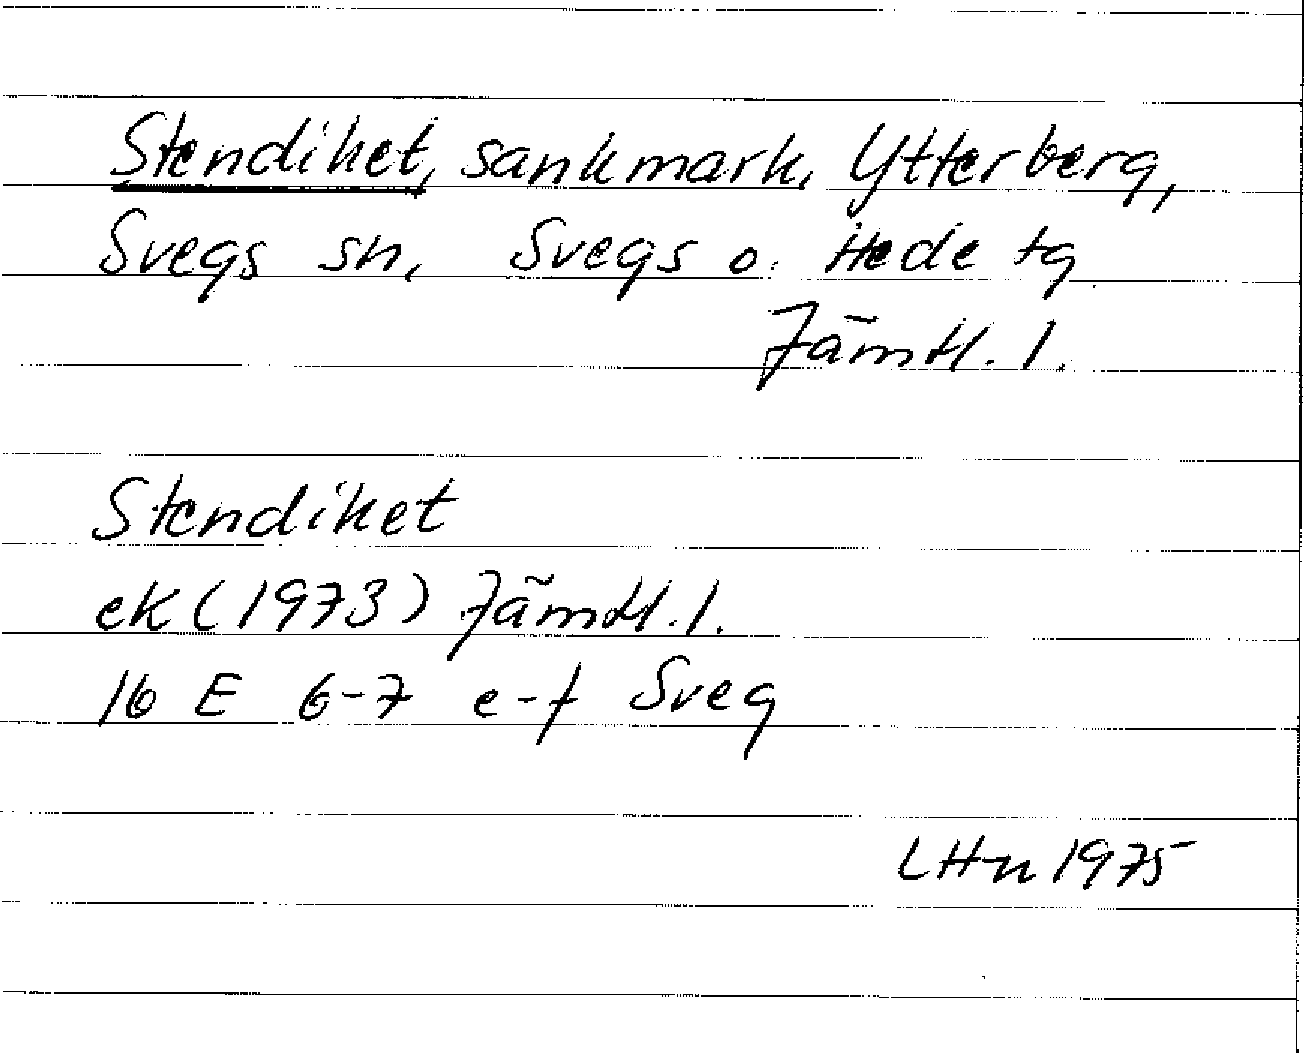 Stendiket, sankmark, Ytterberg,
Svegs sn, Svegs o. Hede tg
Jämtl. l.
Stendiket
ek (1973) Jämtl. l.
16 E 6-7 e-f Sveg
LHn 1975